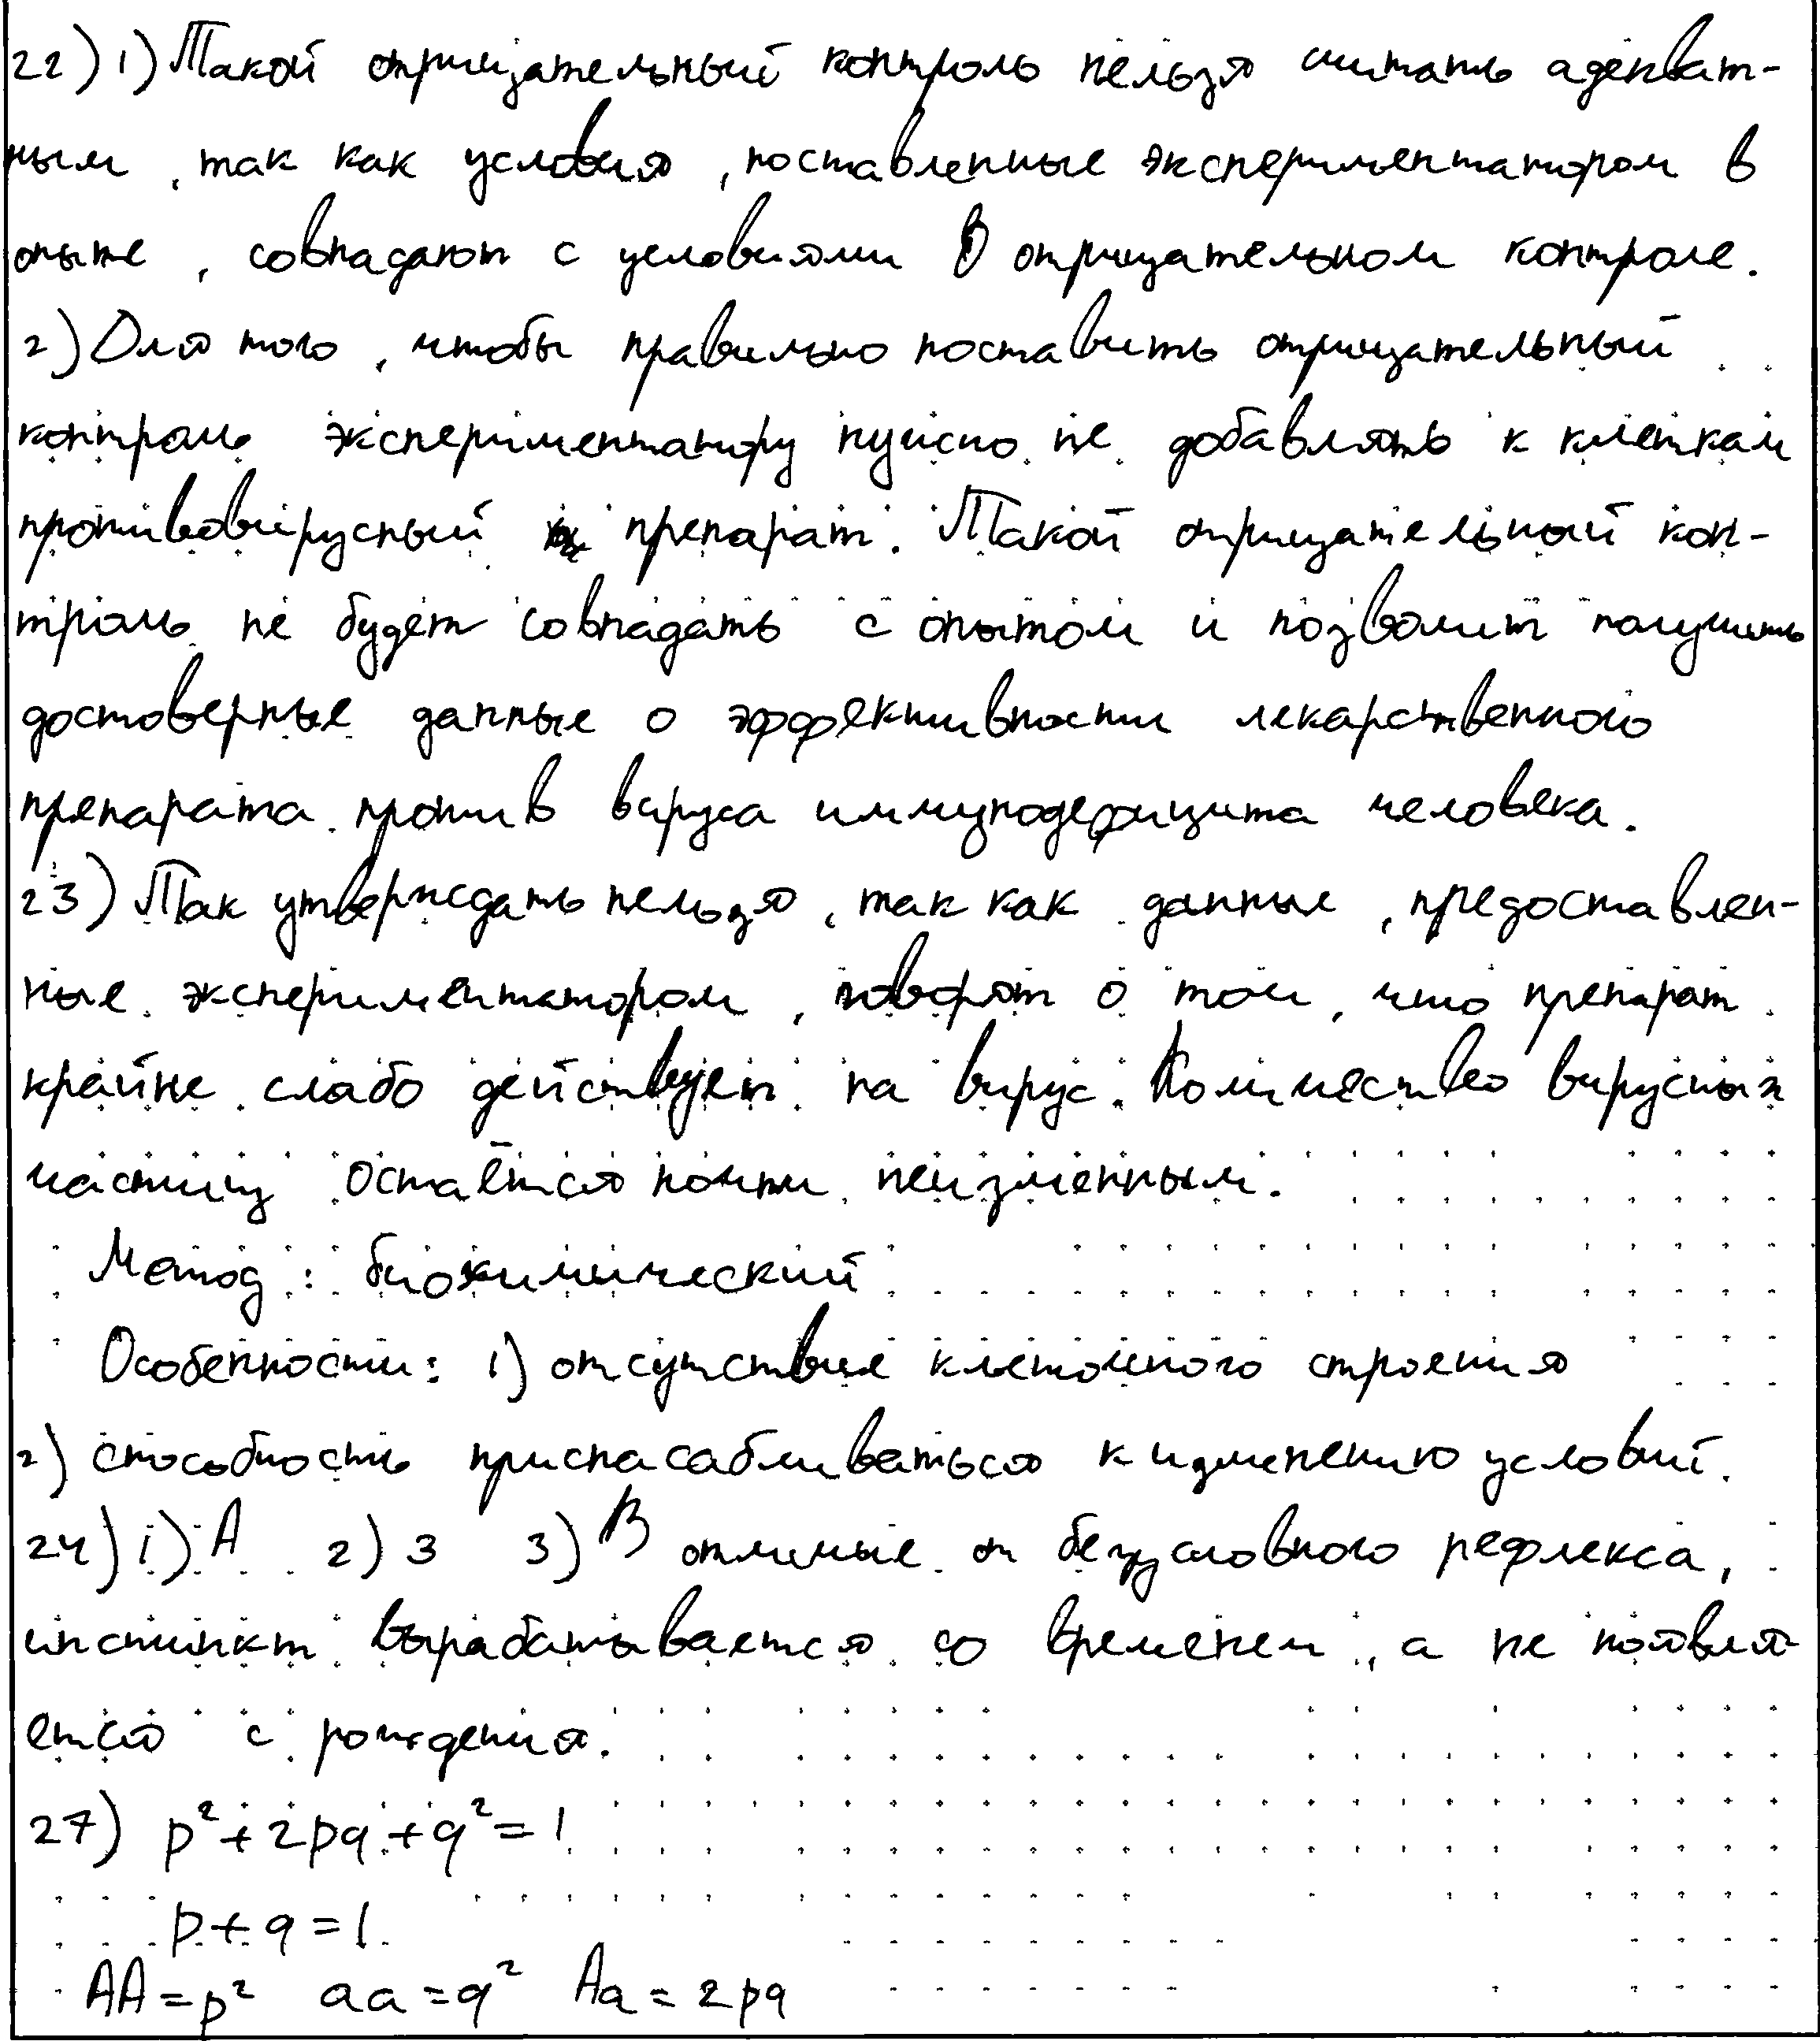 22) 1) Такой отрицательный контроль нельзя считать адекват-
ным, так как условия, поставленные экспериментатором в
опыте, совпадают с условиями в отрицательном контроле.
2) Для того, чтобы правильно поставить отрицательный
контроль экспериментатору нужно не добавлять к клеткам
противовирусный препарат. Такой отрицательный кон-
троль не будет совпадать с опытом и позволит получить
достоверные данные о эффективности лекарственного
препарата против вируса иммунодефицита человека.
23) Так утверждать нельзя, так как данные, предоставлен-
ные экспериментатором, говорят о том, что препарат
крайне слабо действует на вирус. Количество вирусных
частиц остаётся почти неизменным.
Метод: биохимический
Особенности: 1) отсутствие клеточного строения
2) способность приспасабливаться к изменению условий.
24) 1) А 2) 3 3) В отличые от безусловного рефлекса,
инстинкт вырабатывается со временем, а не появля-
ется с рождения.
27) p²+2pq+q²=1
p+q=1
AA=p² aa=q² Aa=2pq